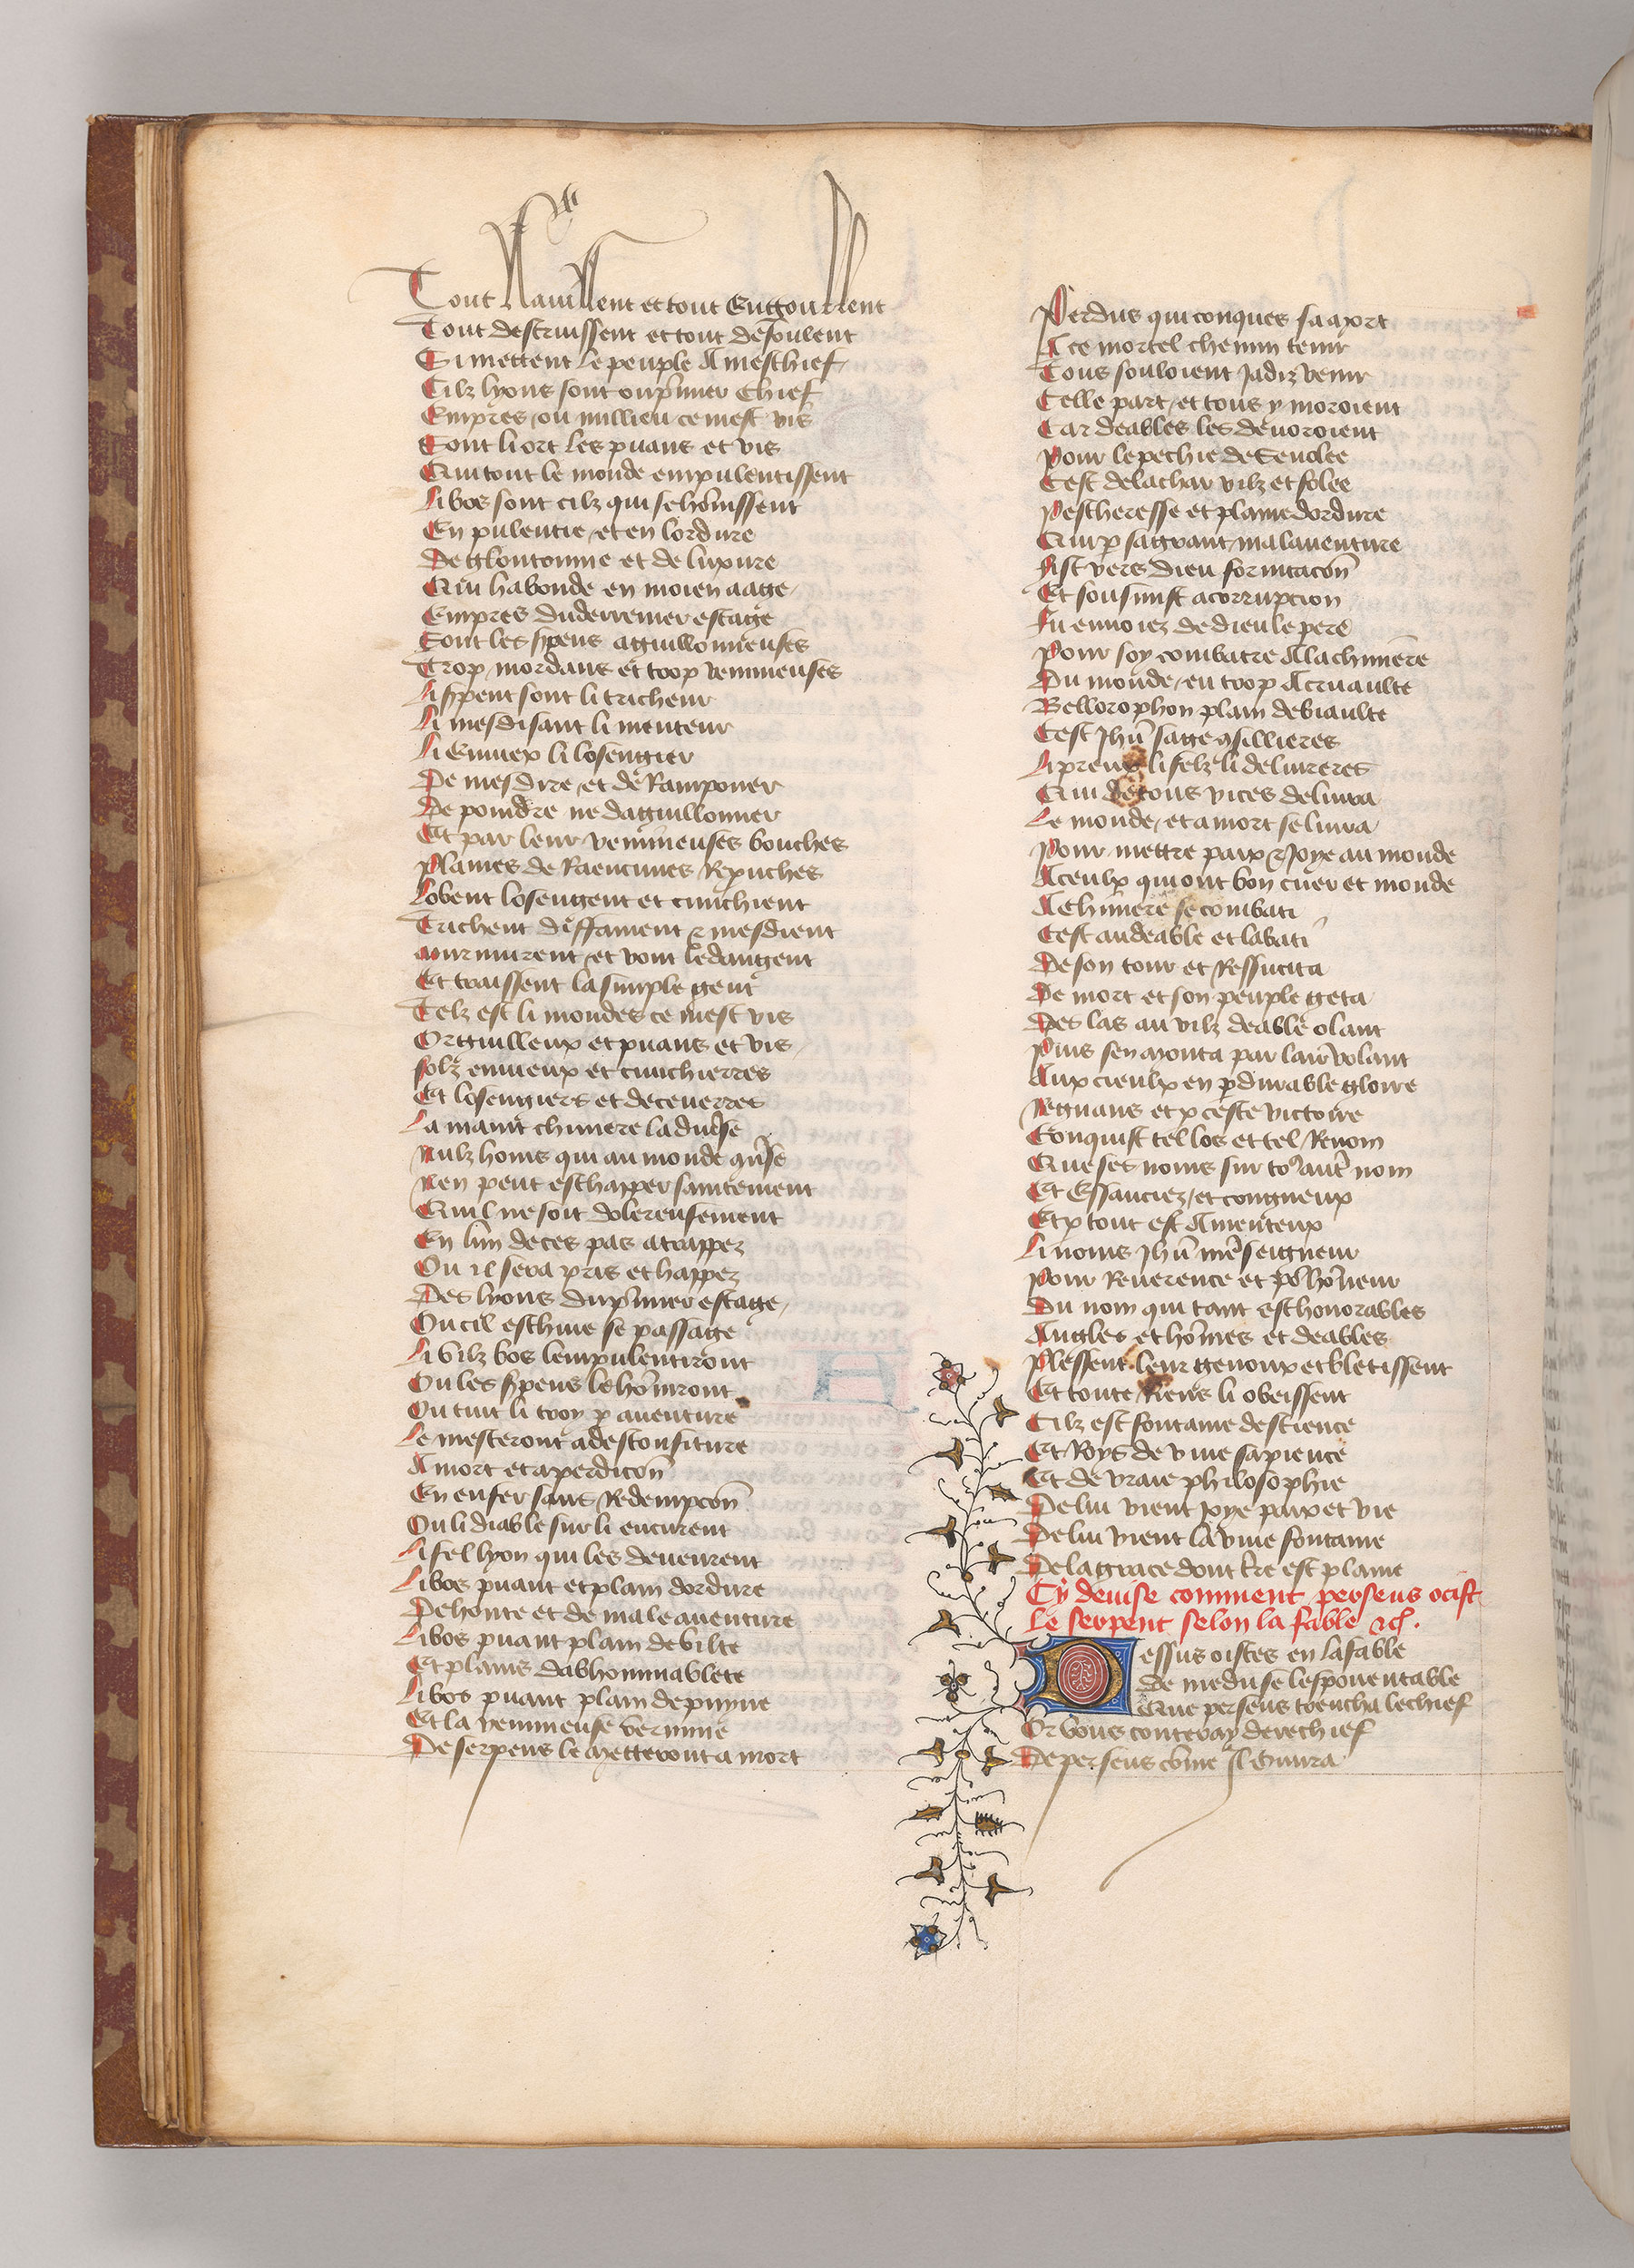 Tout ravissent et tout engoullent
Tout destruissent et tout defoulent
Si mettent le peuple a meschief
Cilz lyons sont ou pmier chief
Empres ou millieu ce mest vis
Sont li ort les puans et vis
Qui tout le monde empulentissent
Li bos sont cilz qui se honissent
En pulentie et en lordure
De gloutonnie et de luxure
Qui habonde en moien aage
Empres du derrenier estage
Sont les spens aguillonneuses
Trop mordans et trop venimeuses
Li spent sont li tricheur
Li mesdisant li menteur
Li envieux li losengier
De mesdire et de ramponer
De poindre ne daguillonner
Et par leur venimeuses bouches
Plaines de raencunes repuches
Lobent losengent et cunchient
Trichent diffament & mesdient
Murmurent et vont ledangent
Et traissent la simple gent
Telz est li mondes ce mest vis
Orguilleux et puans et vis
Folz envieux et cunchierres
Et losengiers et deceverres
La maint chimere la diuse
Nulz homs qui au monde quse
Nen peut eschapper saintement
Quil ne soit dolereusement
En lun de ces pas atrappez
Ou il sera pris et happez
Des lyons du pmier estage
Ou cil eschive se passage
Li vilz bos lempulentiront
Ou les spens le honiront
Ou tuit li troy p aventure
Le mesteront a desconfiture
A mort et a perdicon
En enfer sans redempcon
Ou li diable sur li encurent
Li fel lyon qui les deveurent
Li bos puant et plain dordure
De honte et de male aventure
Li bos puant plain de vilte
Et plains dabhominablete
Li bos puant plain de puyne
Et la venimeuse vermine
De serpens le metteront a mort
Perdus qui conques sa mort
A ce mortel chemin tenir
Tous souloient jadiz venir
Celle part et tous y moroient
Car deables les devoroient
Pour le pechie de Senelee
Cest de la char vilz et folee
Pescheresse et plaine dordure
Qui p sa grant malaventure
Fist vers dieu fornicacon
Et sousmist a corrupcion
Fu envoiez de dieu le pere
Pour soy combatre a la chimere
Du monde en trop a cruaulte
Bellorophon plain de biaulte
Cest Jhu sage 9sillieres
Li preus li felz li delivreres
Qui de tous vices delivra
Le monde et a mort se livra
Pour mettre paix & joye au monde
A ceulx qui ont bon cuer et monde
A chimere se combati
Cest au deable et labati
De son tour et ressucita
De mort et son peuple geta
Des las au vilz deable olant
Puis sen monta par lair volant
Aux cieulx en pdurable gloire
Regnans et p ceste victoire
Conquist tel los et tel renom
Que ses noms sur to9 autre nom
Et essauciez et congneux
Et p tout est amenteux
Li noms Jhu nre seigneur
Pour reverence et po honeur
Du nom qui tant est honorables
Angles et homes et deables
Plessent leur genoux et bletissent
Et toute riens li obeissent
Cilz est fontaine de science
Et roys de vive sapience
Et de vraie philosophie
De lui vient joye paix et vie
De lui vient la vive fontaine
De la grace dont tre est plaine
Cy devise comment perseus ocist
Le serpent selon la fable &c.
Dessus oistes en la fable
De meduse lespouentable
Que perseus trencha le chief
Or vous conteray derechief
De perseus come il ouvra